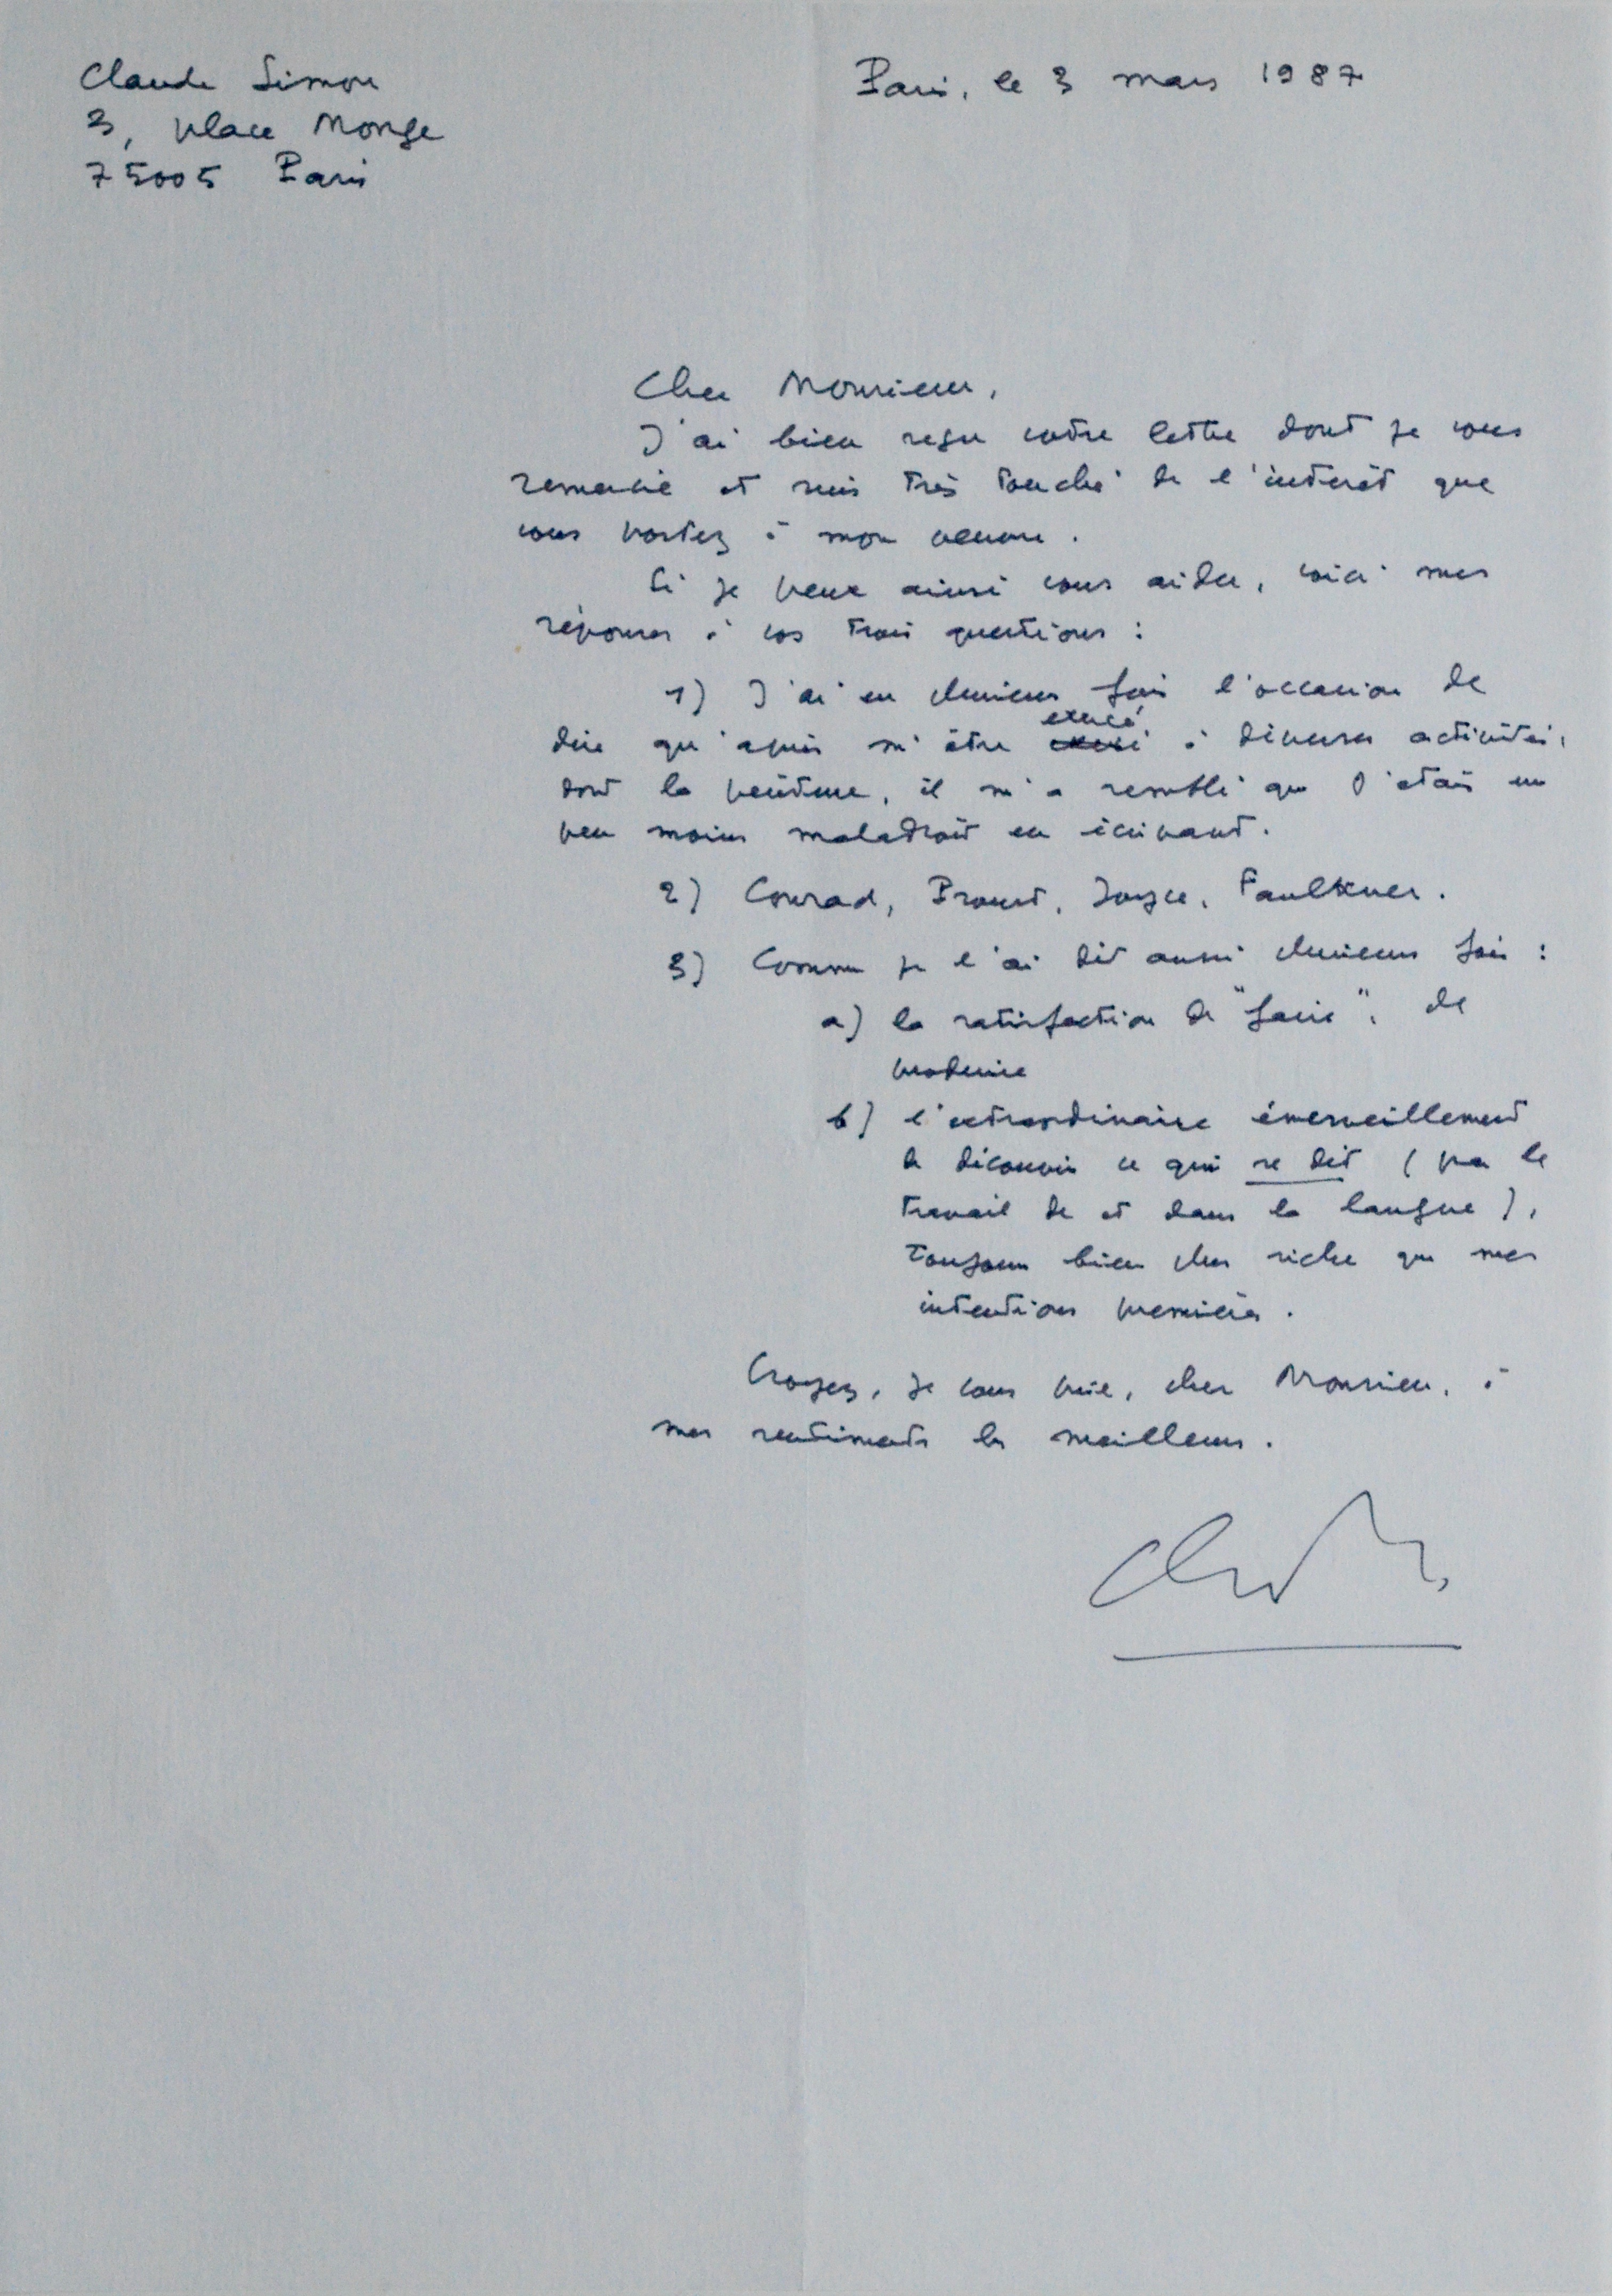 Claude Simon
3, place Monge
75005 Paris
Paris, le 3 mars 1987
Cher Monsieur,
J'ai bien reçu votre lettre dont je vous
remercie et suis très touché de l'intérêt que
vous portez à mon œuvre.
Si je peux ainsi vous aider, voici mes
réponses à vos trois questions :
1) J'ai eu plusieurs fois l'occasion de
exercé
dire qu'après m'être à diverses activités,
dont la peinture, il m'a semblé que j'étais un
peu moins maladroit en écrivant.
2) Conrad, Proust, Joyce, Faulkner.
3) Comme je l'ai dit aussi plusieurs fois :
a) la satisfaction de "faire", de
produire
b) l'extraordinaire émerveillement
de découvrir ce qui se dit (par le
travail de et dans la langue),
toujours bien plus riche que mes
intentions premières.
Croyez, je vous prie, cher Monsieur, à
mes sentiments les meilleurs.